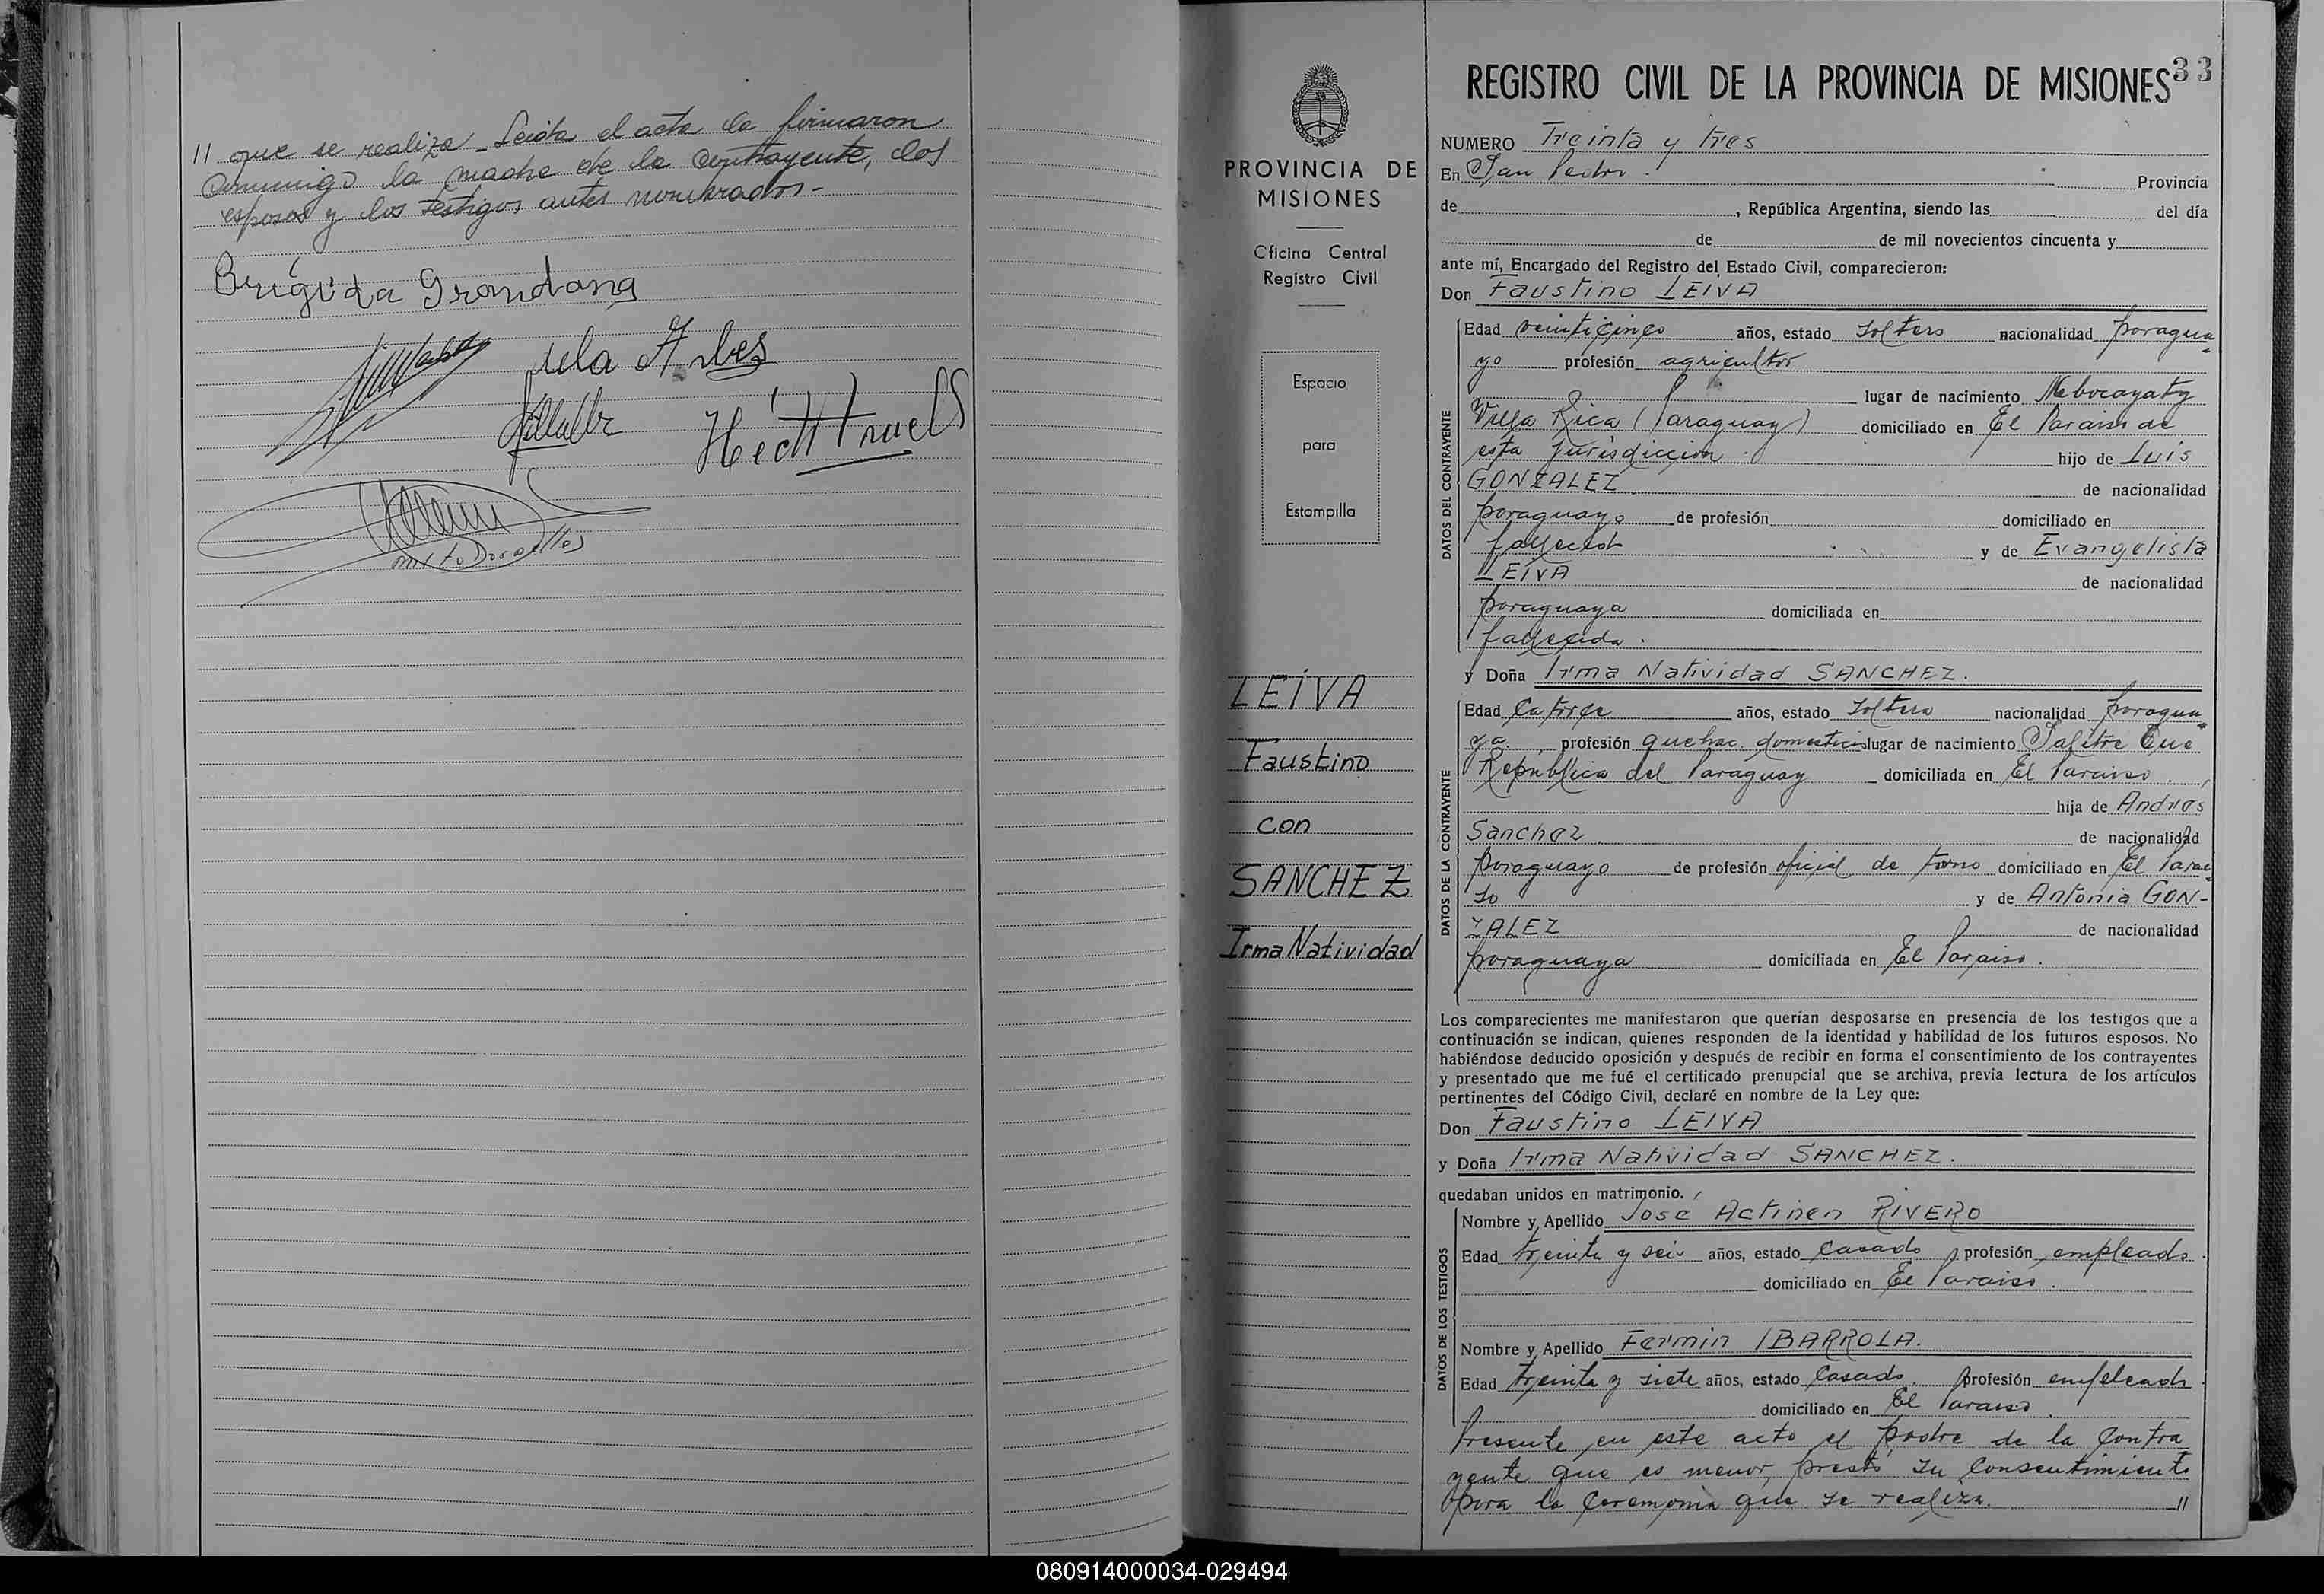 // que se realiza - Leída el acta la firmaron
conmigo la madre de la contrayente, los
esposos y los testigos antes nombrados -
Brígida Grondona
Hécttruel
33
PROVINCIA DE
MISIONES
Oficina Central
Registro Civil
Espacio
para
Estampilla
LEÍVA
Faustino
con
SANCHEZ
Irma Natividad
REGISTRO CIVIL DE LA PROVINCIA DE MISIONES
NUMERO Treinta y tres
En San Pedro. Provincia
de , República Argentina, siendo las del día
de de mil novecientos cincuenta y
ante mí, Encargado del Registro del Estado Civil, comparecieron:
Don Faustino LEIVA
DATOS DEL CONTRAYENTE
Edad veinticinco años, estado soltero nacionalidad paragua-
yo profesión agricultor
lugar de nacimiento Mbocayaty
Villa Rica (Paraguay) domiciliado en El Paraiso de
esta jurisdiccion. hijo de Luís
GONZALEZ de nacionalidad
paraguayo de profesión domiciliado en
fallecido y de Evangelista
LEÍVA de nacionalidad
paraguaya domiciliada en
fallecida.
y Doña Irma Natividad SANCHEZ.
DATOS DE LA CONTRAYENTE
Edad Catorce años, estado soltera nacionalidad paragua-
ya. profesión quehac. domesticos lugar de nacimiento Salitre Cue
República del Paraguay domiciliada en El Paraiso.
hija de Andres
Sanchez. de nacionalidad
paraguayo de profesión oficial de torno domiciliado en El Parai-
so y de Antonia GON-
ZALEZ de nacionalidad
paraguaya domiciliada en El Paraiso.
Los comparecientes me manifestaron que querían desposarse en presencia de los testigos que a
continuación se indican, quienes responden de la identidad y habilidad de los futuros esposos. No
habiéndose deducido oposición y después de recibir en forma el consentimiento de los contrayentes
y presentado que me fué el certificado prenupcial que se archiva, previa lectura de los artículos
pertinentes del Código Civil, declaré en nombre de la Ley que:
Don Faustino LEIVA
y Doña Irma Natividad SANCHEZ.
quedaban unidos en matrimonio.
DATOS DE LOS TESTIGOS
Nombre y Apellido Jose Actinen RIVERO
Edad treinta y seis años, estado casado profesión empleado.
domiciliado en El Paraiso.
Nombre y Apellido Fermin IBARROLA.
Edad treinta y siete años, estado Casado. profesión empleado.
domiciliado en El Paraiso.
Presente en este acto el padre de la contra
yente que es menor, prestó su consentimiento
para la ceremonia que se realiza. //
080914000034-029494